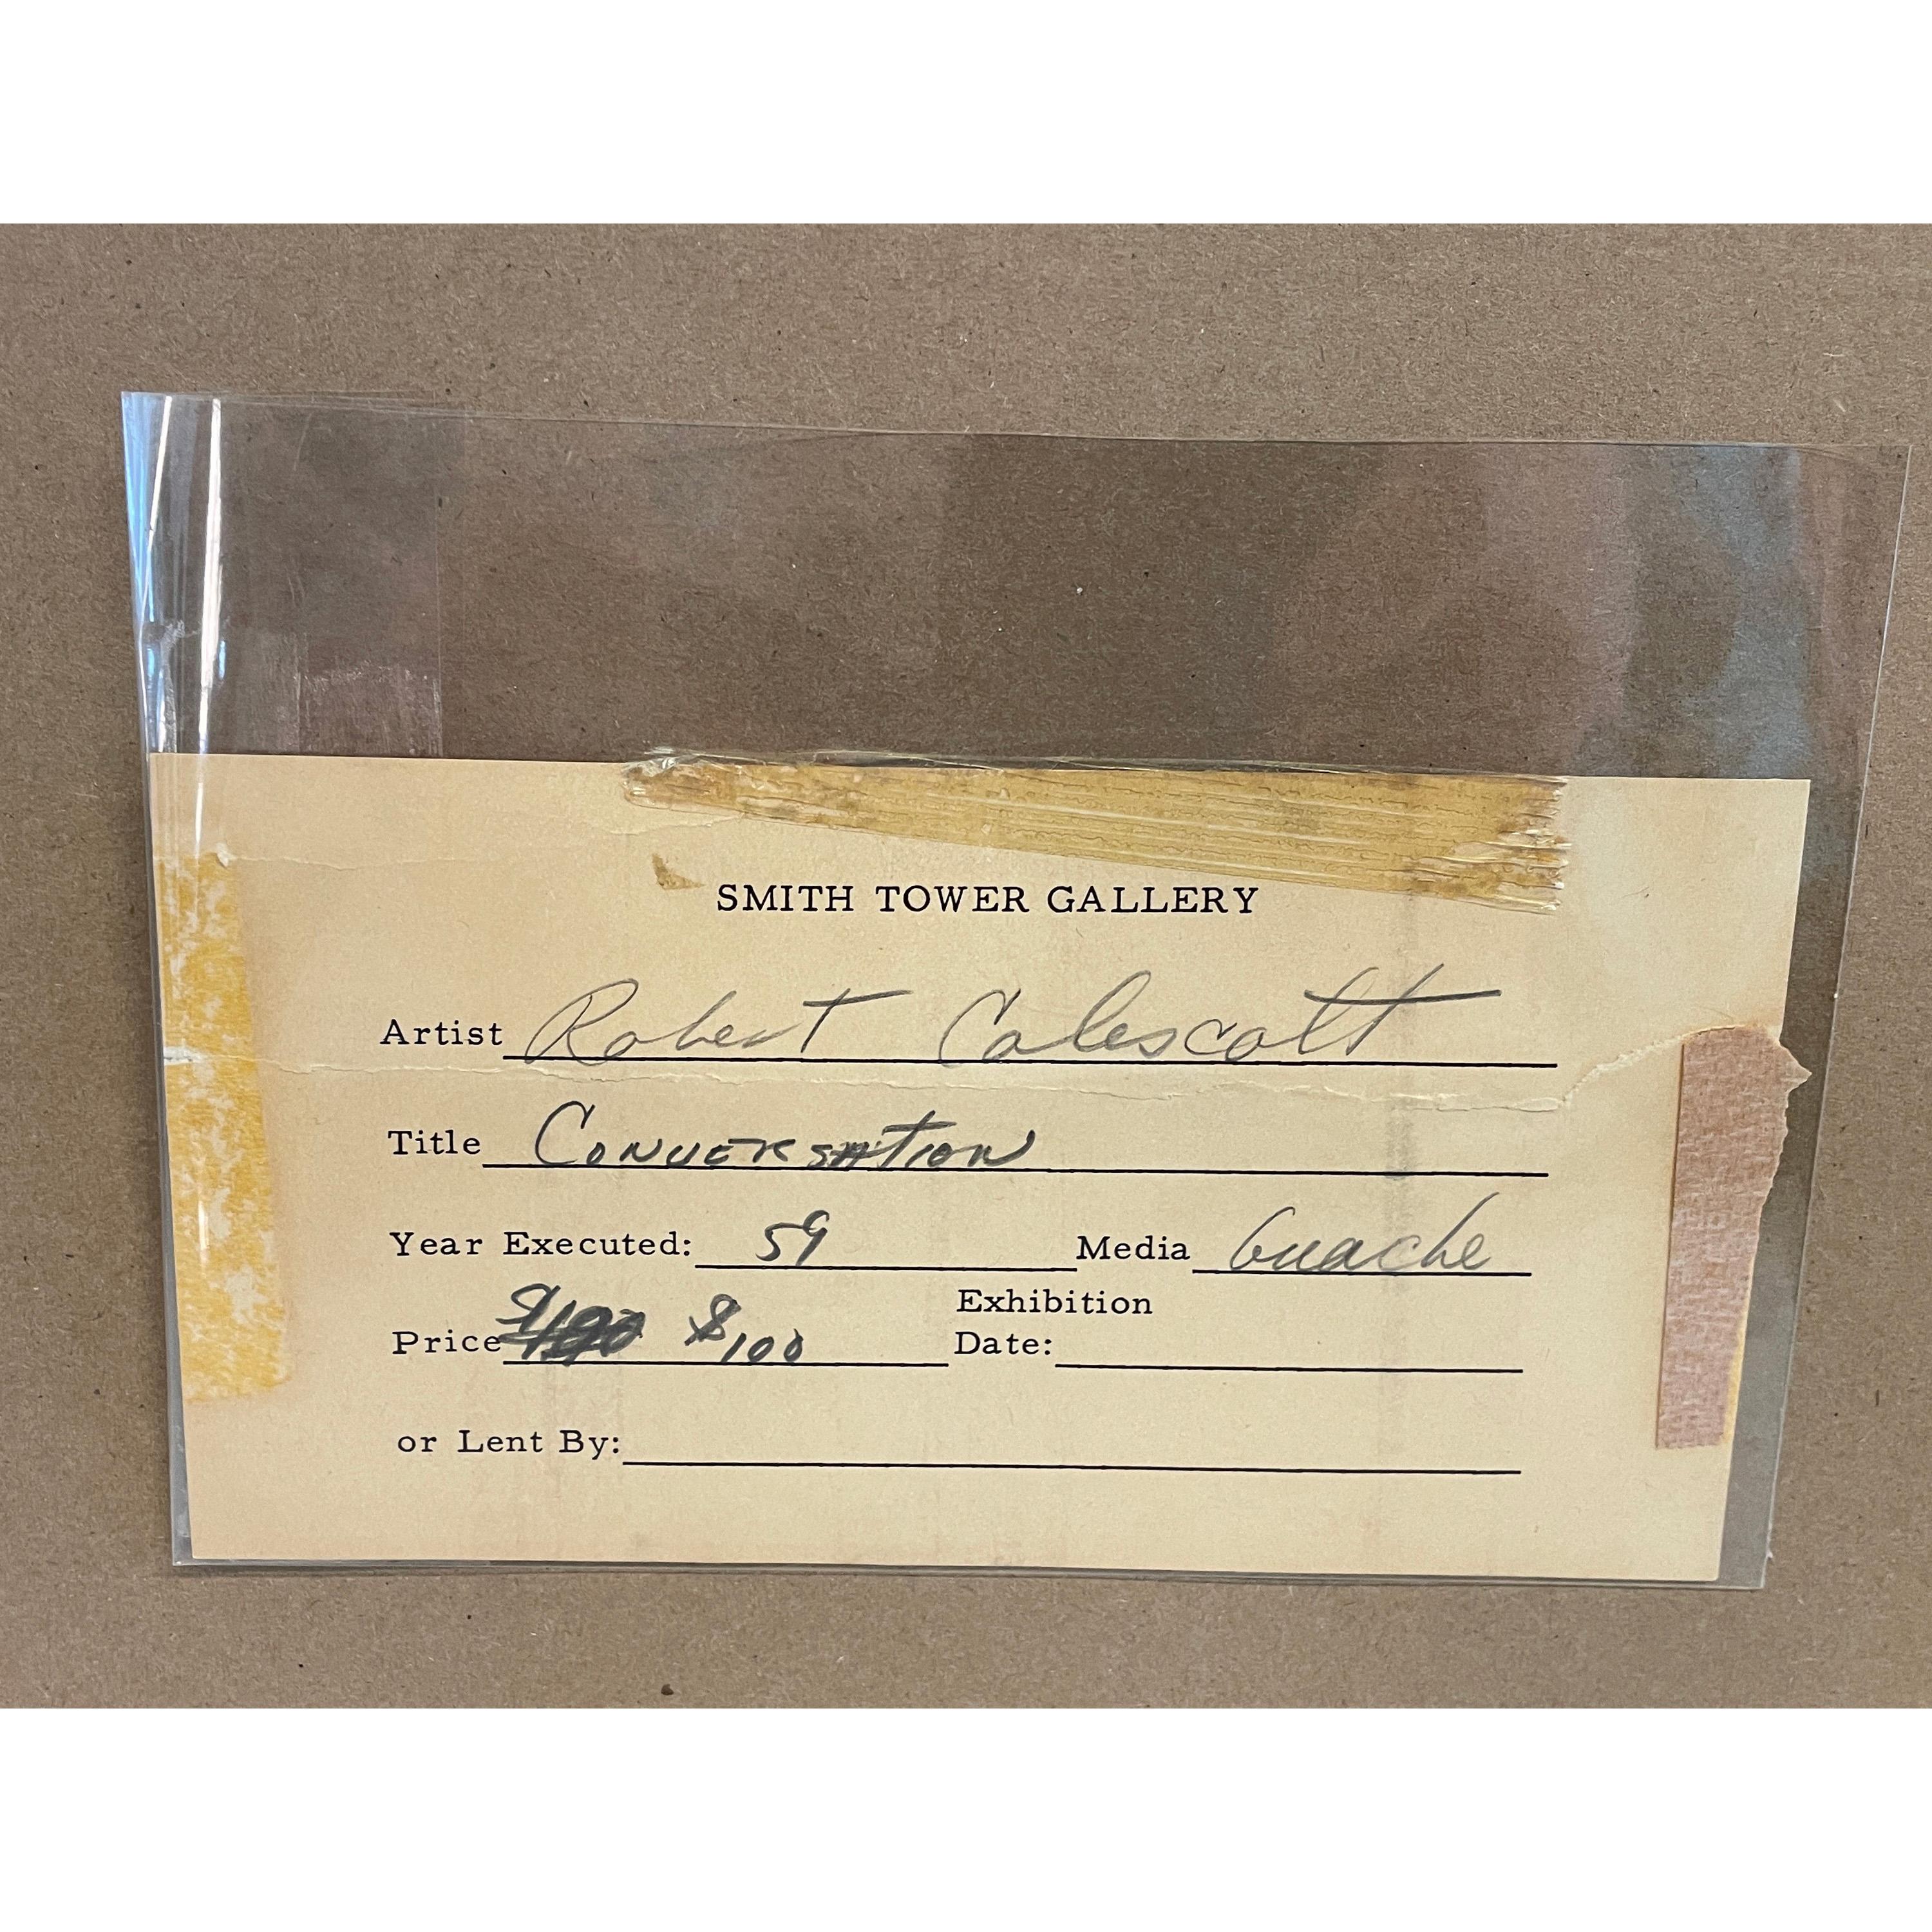 SMITH TOWER GALLERY
Artist Robert Colescott
Title Conversation
Year Executed: 59 Media Guache
Price $100 Exhibition Date:
or Lent By: